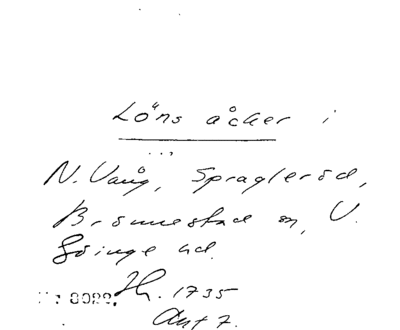 Löns åcker i
N. Vång, Spragleröd,
Brönnestad sn, V.
Göinge hd.
8089, Hl. 1735
Ant 7.